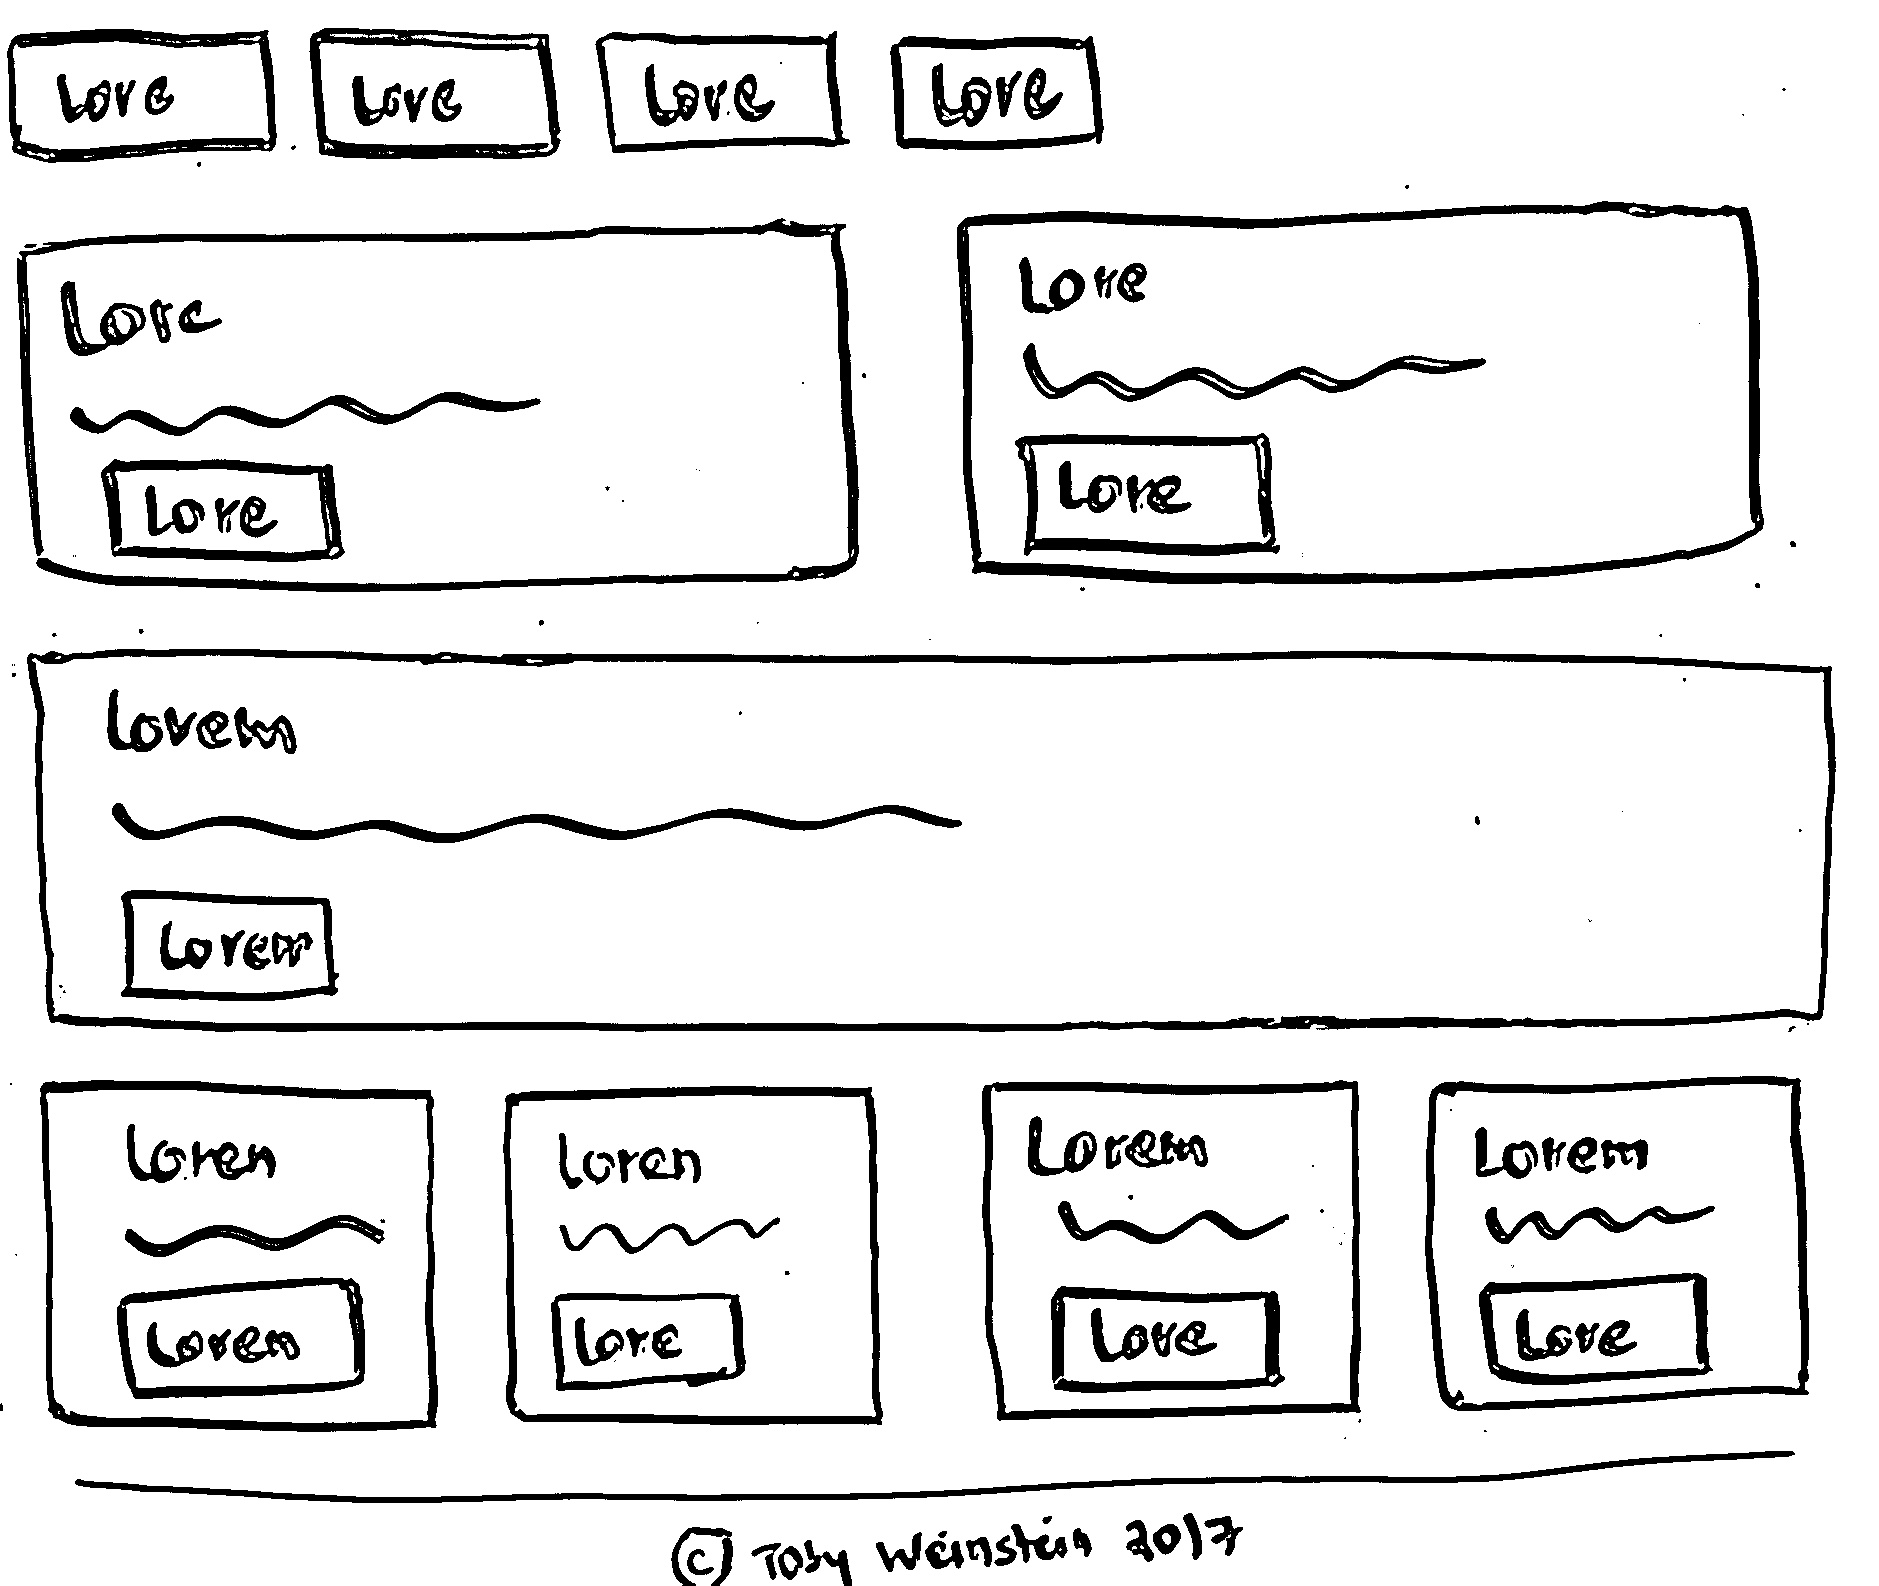 Lore Lore Lore Lore
Lore Lore
Lore Lore
Lorem
Lorem
Loren Loren Lorem Lorem
Loren Lore Lore Lore
© Toby Weinstein 2017